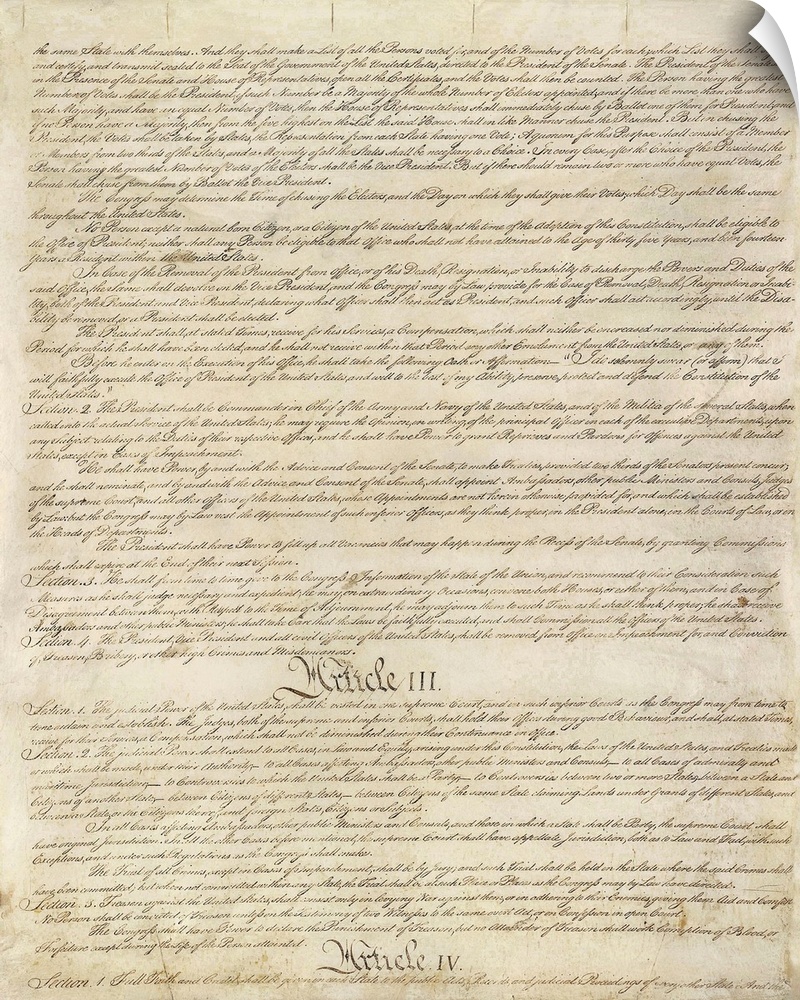 the same State with themselves. And they shall make a List of all the Persons voted for, and of the Number of Votes for each; which List they shall
and certify, and transmit sealed to the Seat of the Government of the United States, directed to the President of the Senate. The President of the Senate
in the Presence of the Senate and House of Representatives, open all the Certificates, and the Votes shall then be counted. The Person having the greatest
Number of Votes shall be the President, if such Number be a Majority of the whole Number of Electors appointed; and if there be more than one who have
such Majority, and have an equal Number of Votes, then the House of Representatives shall immediately chuse by Ballot one of them for President; and
if no Person have a Majority, then from the five highest on the List the said House shall in like Manner chuse the President. But in chusing the
President, the Votes shall be taken by States, the Representation from each State having one Vote; A quorum for this Purpose shall consist of a Member
or Members from two thirds of the States, and a Majority of all the States shall be necessary to a Choice. In every Case, after the Choice of the President, the
Person having the greatest Number of Votes of the Electors shall be the Vice President. But if there should remain two or more who have equal Votes, the
Senate shall chuse from them by Ballot the Vice President.
The Congress may determine the Time of chusing the Electors, and the Day on which they shall give their Votes; which Day shall be the same
throughout the United States.
No Person except a natural born Citizen, or a Citizen of the United States, at the time of the Adoption of this Constitution, shall be eligible to
the Office of President; neither shall any Person be eligible to that Office who shall not have attained to the Age of thirty five Years, and been fourteen
Years a Resident within the United States.
In Case of the Removal of the President from Office, or of his Death, Resignation, or Inability to discharge the Powers and Duties of the
said Office, the Same shall devolve on the Vice President, and the Congress may by Law, provide for the Case of Removal, Death, Resignation or Inabi-
lity, both of the President and Vice President, declaring what Officer shall then act as President, and such Officer shall act accordingly, until the Disa-
bility be removed, or a President shall be elected.
The President shall, at stated Times, receive for his Services, a Compensation, which shall neither be increased nor diminished during the
Period for which he shall have been elected, and he shall not receive within that Period any other Emolument from the United States, or any of them.
Before he enter on the Execution of his Office, he shall take the following Oath or Affirmation:— "I do solemnly swear (or affirm) that I
will faithfully execute the Office of President of the United States, and will to the best of my Ability, preserve, protect and defend the Constitution of the
United States."
Section. 2. The President shall be Commander in Chief of the Army and Navy of the United States, and of the Militia of the several States, when
called into the actual Service of the United States; he may require the Opinion, in writing, of the principal Officer in each of the executive Departments, upon
any Subject relating to the Duties of their respective Offices, and he shall have Power to grant Reprieves and Pardons for Offences against the United
States, except in Cases of Impeachment.
He shall have Power, by and with the Advice and Consent of the Senate, to make Treaties, provided two thirds of the Senators present concur;
and he shall nominate, and by and with the Advice and Consent of the Senate, shall appoint Ambassadors, other public Ministers and Consuls, Judges
of the supreme Court, and all other Officers of the United States, whose Appointments are not herein otherwise provided for, and which shall be established
by Law: but the Congress may by Law vest the Appointment of such inferior Officers, as they think proper, in the President alone, in the Courts of Law, or in
the Heads of Departments.
The President shall have Power to fill up all Vacancies that may happen during the Recess of the Senate, by granting Commissions
which shall expire at the End of their next Session.
Section. 3. He shall from time to time give to the Congress Information of the State of the Union, and recommend to their Consideration such
Measures as he shall judge necessary and expedient; he may, on extraordinary Occasions, convene both Houses, or either of them, and in Case of
Disagreement between them, with Respect to the Time of Adjournment, he may adjourn them to such Time as he shall think proper; he shall receive
Ambassadors and other public Ministers; he shall take Care that the Laws be faithfully executed, and shall Commission all the Officers of the United States.
Section. 4. The President, Vice President and all civil Officers of the United States, shall be removed from Office on Impeachment for, and Conviction
of, Treason, Bribery, or other high Crimes and Misdemeanors.
Article III.
Section. 1. The judicial Power of the United States, shall be vested in one supreme Court, and in such inferior Courts as the Congress may from time to
time ordain and establish. The Judges, both of the supreme and inferior Courts, shall hold their Offices during good Behaviour, and shall, at stated Times,
receive for their Services, a Compensation, which shall not be diminished during their Continuance in Office.
Section. 2. The judicial Power shall extend to all Cases, in Law and Equity, arising under this Constitution, the Laws of the United States, and Treaties made
or which shall be made, under their Authority;— to all Cases affecting Ambassadors, other public Ministers and Consuls;— to all Cases of admiralty and
maritime Jurisdiction;— to Controversies to which the United States shall be a Party;— to Controversies between two or more States;— between a State and
Citizens of another State,— between Citizens of different States,— between Citizens of the same State claiming Lands under Grants of different States, and
between a State, or the Citizens thereof, and foreign States, Citizens or Subjects.
In all Cases affecting Ambassadors, other public Ministers and Consuls, and those in which a State shall be Party, the supreme Court shall
have original Jurisdiction. In all the other Cases before mentioned, the supreme Court shall have appellate Jurisdiction, both as to Law and Fact, with such
Exceptions, and under such Regulations as the Congress shall make.
The Trial of all Crimes, except in Cases of Impeachment, shall be by Jury; and such Trial shall be held in the State where the said Crimes shall
have been committed; but when not committed within any State, the Trial shall be at such Place or Places as the Congress may by Law have directed.
Section. 3. Treason against the United States, shall consist only in levying War against them, or in adhering to their Enemies, giving them Aid and Comfort.
No Person shall be convicted of Treason unless on the Testimony of two Witnesses to the same overt Act, or on Confession in open Court.
The Congress shall have Power to declare the Punishment of Treason, but no Attainder of Treason shall work Corruption of Blood, or
Forfeiture except during the Life of the Person attainted.
Article IV.
Section. 1. Full Faith and Credit shall be given in each State to the public Acts, Records, and judicial Proceedings of every other State. And the